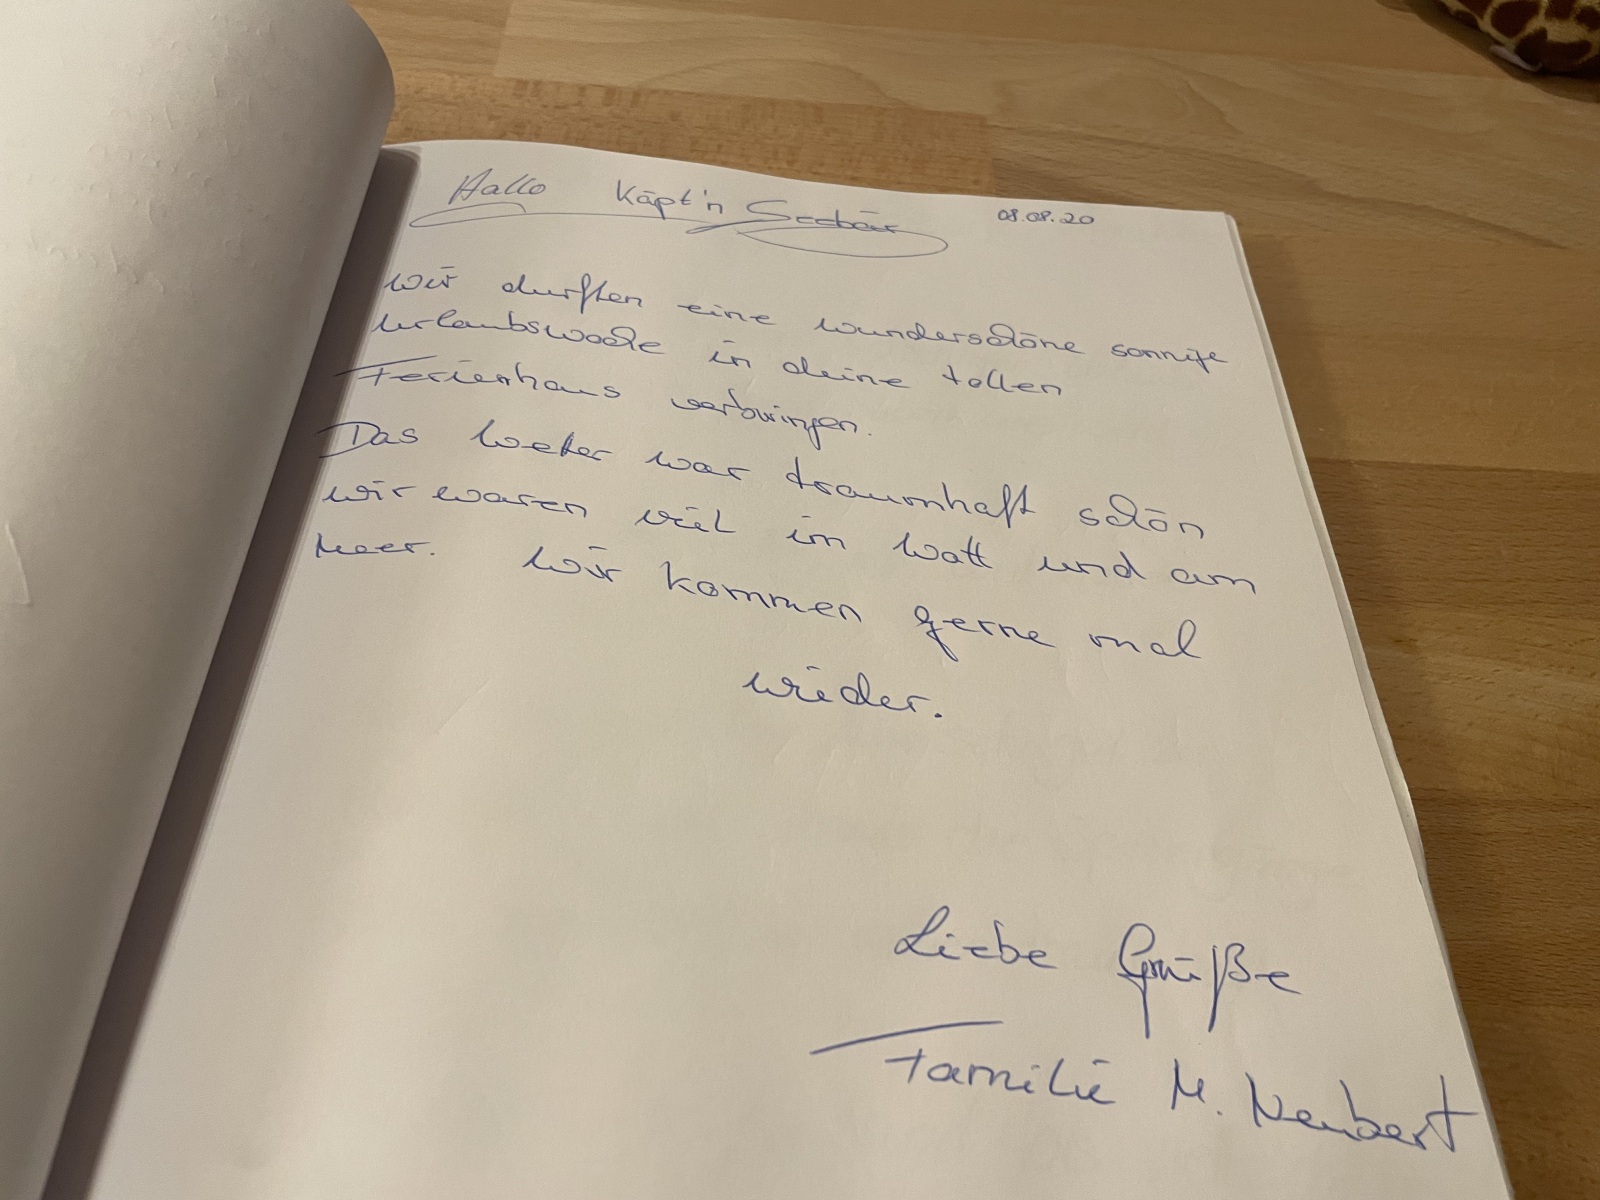 Hallo Käpt'n Seebär 08.08.20
Wir durften eine wunderschöne sonnige
Urlaubswoche in deine tollen
Ferienhaus verbringen.
Das Wetter war traumhaft schön
wir waren viel im Watt und am
Meer. Wir kommen gerne mal
wieder.
Liebe Grüße
Familie M. Neubert